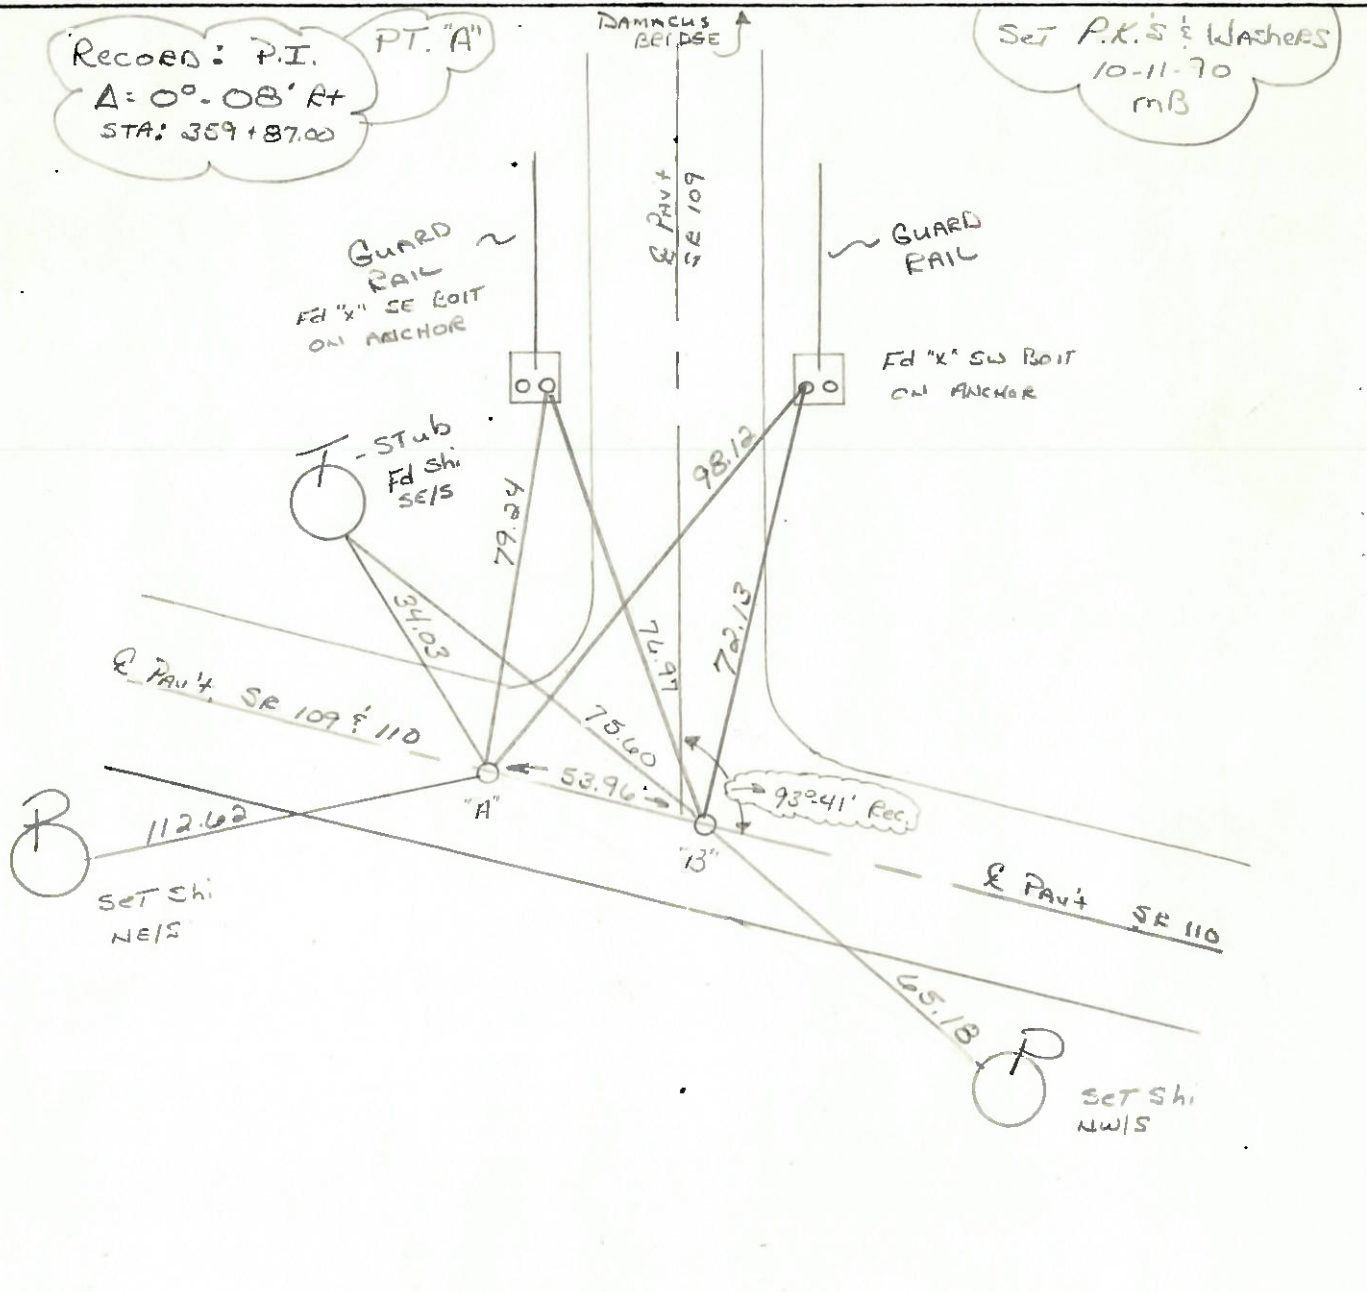 RECORD: P.I.
Δ= 0°-08' Rt
STA: 359+87.00
PT. "A"
DAMACUS
BRIDGE
Set P.K.'s & Washers
10-11-90
mB
℄ PAV't
SR 109
GUARD
RAIL
Fd "x" SE BOlT
ON ANCHOR
GUARD
RAIL
Fd "x" SW BOlT
ON ANCHOR
T
STub
Fd Shi
SE/S
98.12
79.24
34.03
76.97
72.13
℄ PAV't SR 109 & 110
75.60
53.96
"A"
93°-41' Rec.
"B"
P
112.62
SeT Shi
NE/S
℄ PAV't SR 110
65.18
P
SeT Shi
NW/S